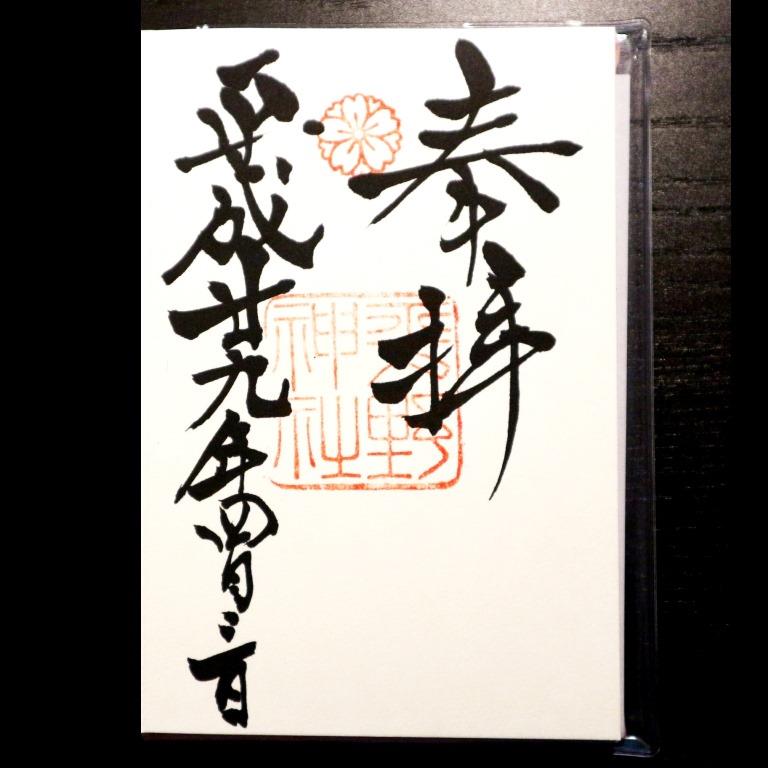 奉拝
野神社
平成廿九年四月三日